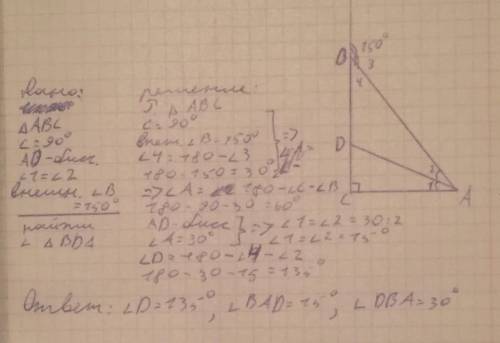 Дано:
△ABC
∠C=90°
AD-бисс.
∠1=∠2
внешн. ∠B
=150°
найти
∠ △BDA
решение:
△ABC
C=90°
внеш. ∠B=150°
∠4=180-∠3
180-150=30°
=> ∠A=
=> ∠A= 180-∠C-∠B
180-90-30=60°
AD-бисс
∠A=30°
=> ∠1=∠2=30:2
∠1=∠2=15°
∠D=180-∠4-∠2
180-30-15=135°
Ответ: ∠D=135°, ∠BAD=15°, ∠DBA=30°
B 150°
3
4
D
2
1
C A